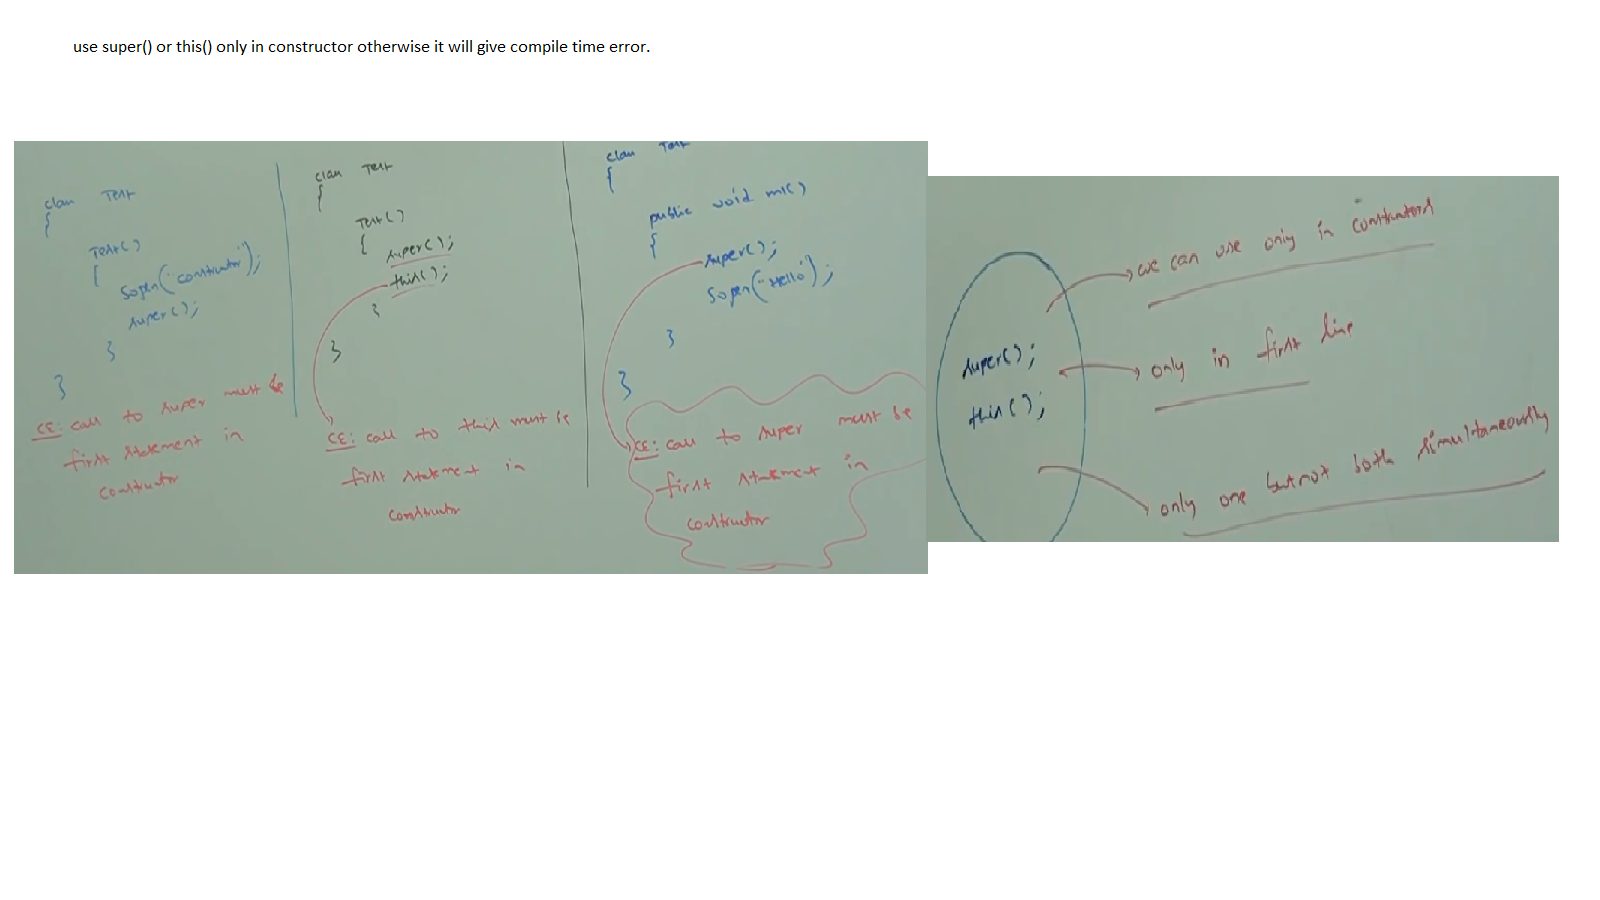 use super() or this() only in constructor otherwise it will give compile time error.
class Test
{
Test()
{
Sopln("constructor");
super();
}
}
CE: call to super must be
first statement in
constructor
class Test
{
Test()
{
super();
this();
}
}
CE: call to this must be
first statement in
constructor
class Test
{
public void m1()
{
super();
Sopln("Hello");
}
}
CE: call to super must be
first statement in
constructor
super();
this();
we can use only in constructors
only in first line
only one but not both simultaneously